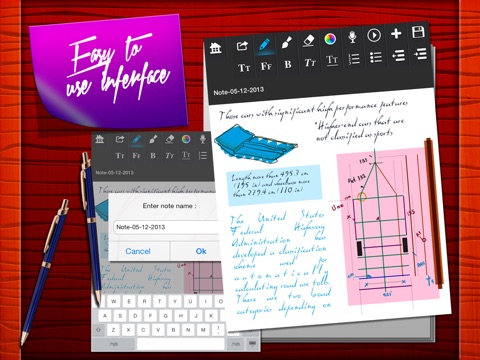 Easy to
use interface
Tt Ff B Tt Tt
Note-05-12-2013
Those cars with significant high performance features
*Higher-end cars that are
not classified as sports
Length more than 495.3 cm
(195 in) and wheelbase more
than 279.4 cm (110 in)
The United States
Federal Highway
Administration has
developed a classification
scheme used for
automatically
calculating road use tolls.
There are two broad
categories depending on
Tt Ff B Tt Tt
Note-05-12-2013
Those cars with significant high performance features
Enter note name :
Note-05-12-2013
Cancel Ok
Q W E R T Y U I O P
A S D F G H J K L
Z X C V B N M ! ?
.?123 .?123